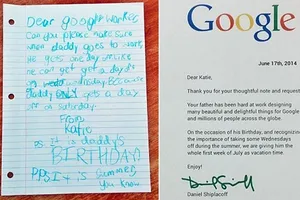 Dear google worker,
Can you please make sure
when daddy goes to work,
he gets one day off. like
he can get get a day off
on wednesday. Because
daddy ONLY gets a day
off on Saturday.
From,
Katie
P.S. It is daddy's
BIRTHDAY!
P.P.S. It is summer,
you know
Google
June 17th, 2014
Dear Katie,
Thank you for your thoughtful note and request
Your father has been hard at work designing
many beautiful and delightful things for Google
and millions of people across the globe.
On the occasion of his Birthday, and recognizing
the importance of taking some Wednesdays
off during the summer, we are giving him the
whole first week of July as vacation time
Enjoy!
Daniel Shiplacoff